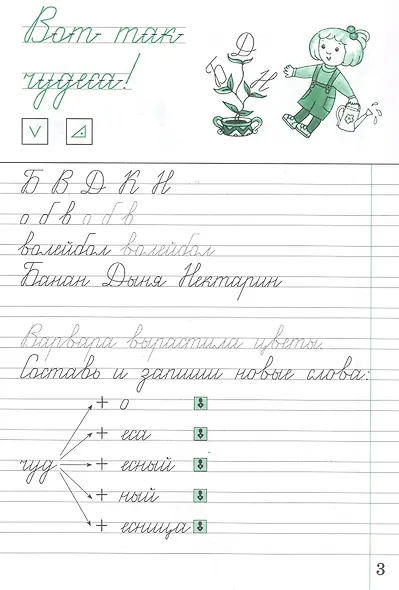 Вот так
чудеса!
Б Д Н
Б В Д К Н
о б в о б в
волейбол волейбол
Банан Дыня Нектарин
Варвара вырастила цветы.
Составь и запиши новые слова:
+ о
+ еса
чуд + есный
+ ный
+ есница
3